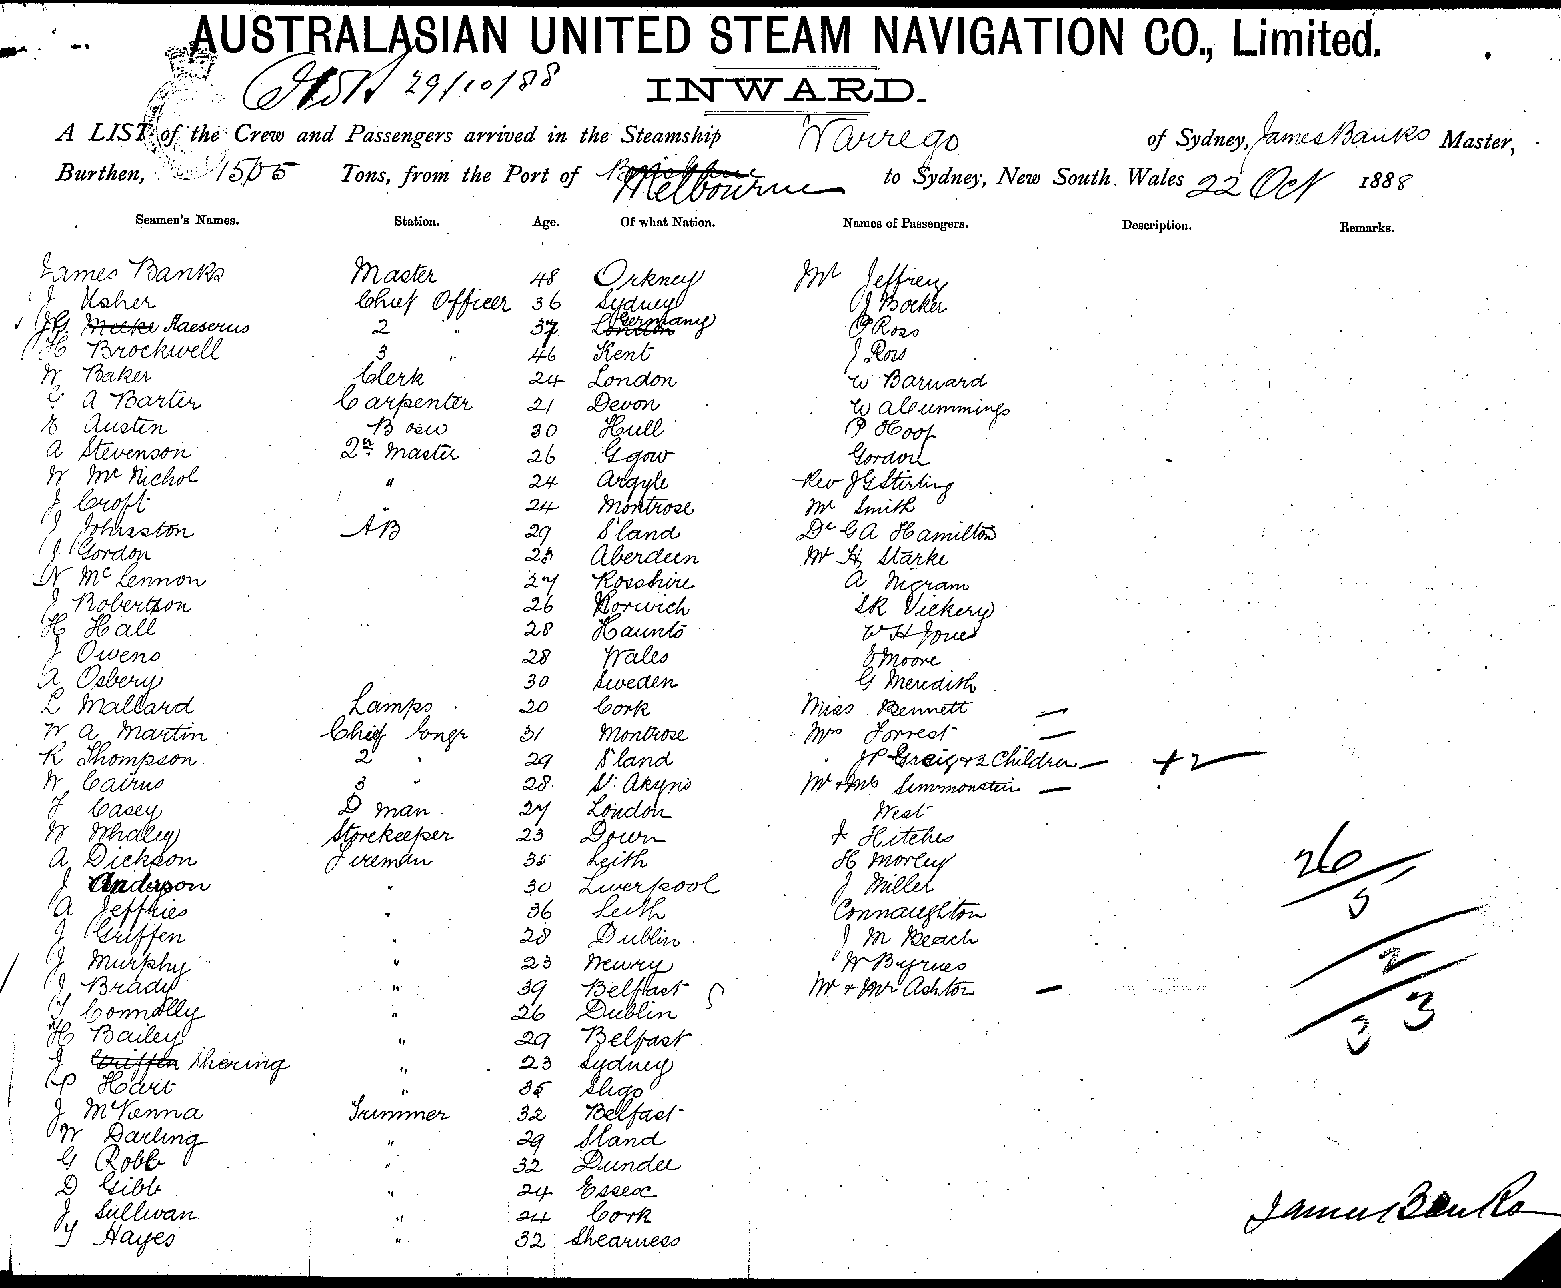 AUSTRALASIAN UNITED STEAM NAVIGATION CO., Limited.
29/10/88
INWARD.
A LIST of the Crew and Passengers arrived in the Steamship Warrego of Sydney, James Banks Master,
Burthen, 1505 Tons, from the Port of Melbourne to Sydney, New South Wales 22 Oct 1888
Seamen's Names. Station. Age. Of what Nation. Names of Passengers. Description. Remarks.
James Banks Master 48 Orkney Mr Jeffrey
J Usher Chief Officer 36 Sydney J Bocker
J G Haeserus 2 " 37 Germany P Ross
H Brockwell 3 " 46 Kent J Ross
W Baker Clerk 24 London W Barnard
G A Barter Carpenter 21 Devon W A Cummings
E Austen Bosw 30 Hull P Hoop
A Stevenson 2nd Master 26 Ggow Gordon
W McNichol " 24 Argyle Rev J G Stirling
J Croft 24 Montrose Mr Smith
J Johnston AB 29 S'land Dr G A Hamilton
J Gordon 28 Aberdeen Mr H Starke
N McLennon 27 Rosshire A Nigram
J Robertson 26 Norwich S R Vickery
H Hall 28 Haunts W H Jones
J Owens 28 Wales J Moore
A Osbery 30 Sweden G Meredith
L Mallard Lamps 20 Cork Miss Bennett —
W A Martin Chief Engr 31 Montrose Mrs Forrest —
R Thompson 2 " 29 S'land J P Greig & 2 Children — + 2
W Cairns 3 " 28 St Akyns Mr & Mrs Simmonstein —
J Casey D man 27 London West
W Whaley Storekeeper 23 Down J Hitches
A Dickson Fireman 35 Leith H Morley
J Anderson " 30 Liverpool J Miller
A Jeffries " 36 Leith Connaughton
J Griffen " 28 Dublin J M Beach
J Murphy " 23 Newry W Byrnes
J Brady " 39 Belfast Mr & Mrs Ashton —
T Connolly " 26 Dublin
H Bailey " 29 Belfast
J Griffen Shering " 23 Sydney
P Hart " 35 Sligo
J McKenna Trimmer 32 Belfast
W Darling " 29 S'land
G Robb " 32 Dundee
D Gibb " 24 Essex
J Sullivan " 24 Cork
T Hayes " 32 Shearness
26
5
2
3 3
James Banks